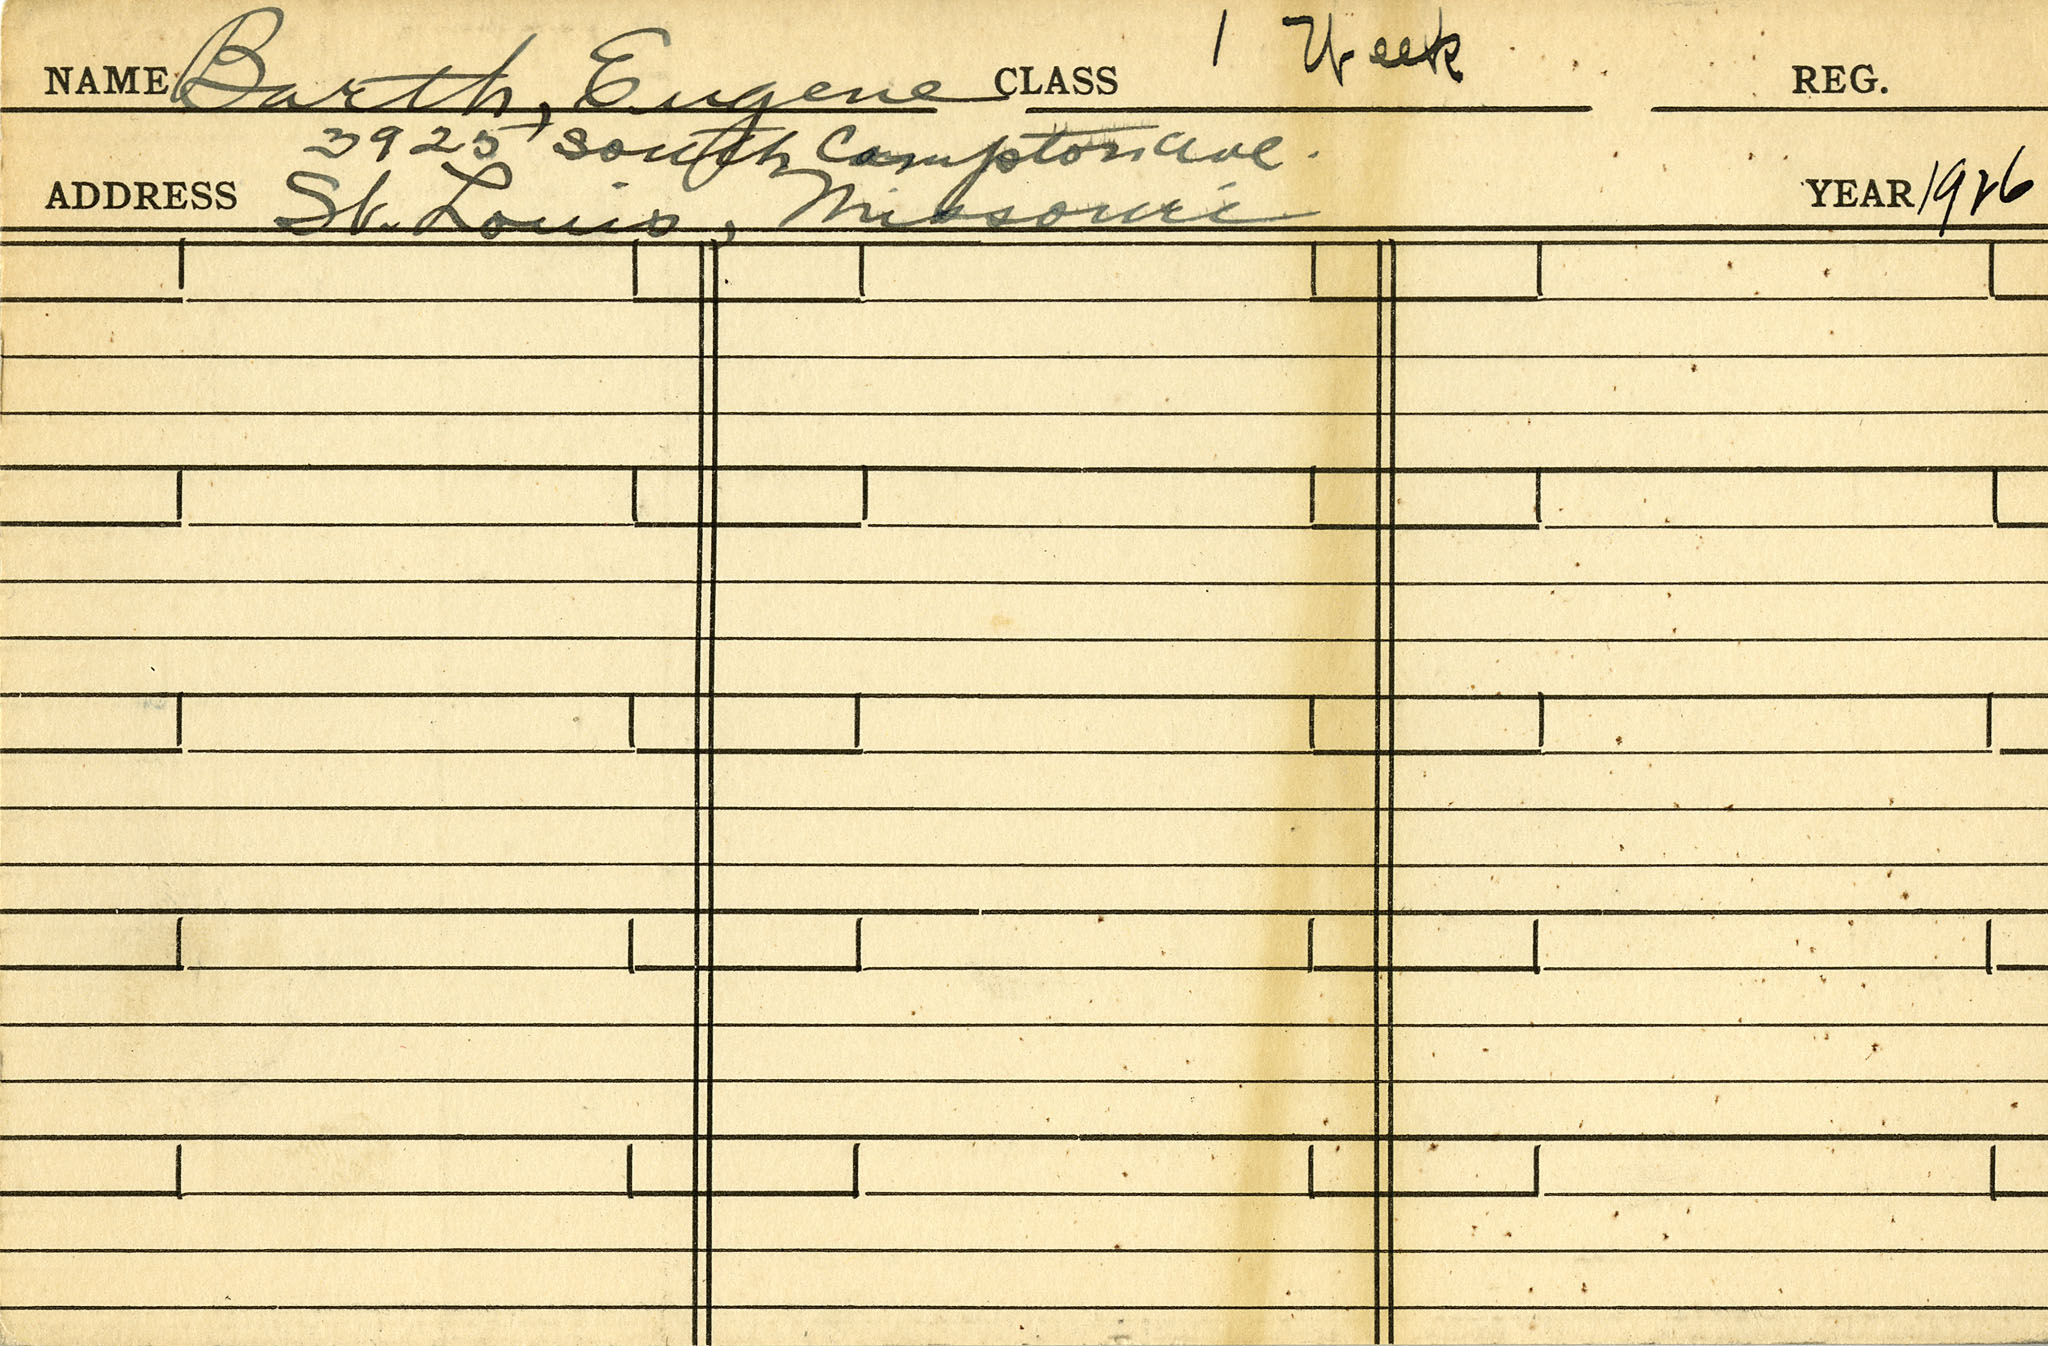 NAME Barth, Eugene CLASS 1 Week REG.
3925 South Compton Ave.
ADDRESS St. Louis, Missouri YEAR 1926